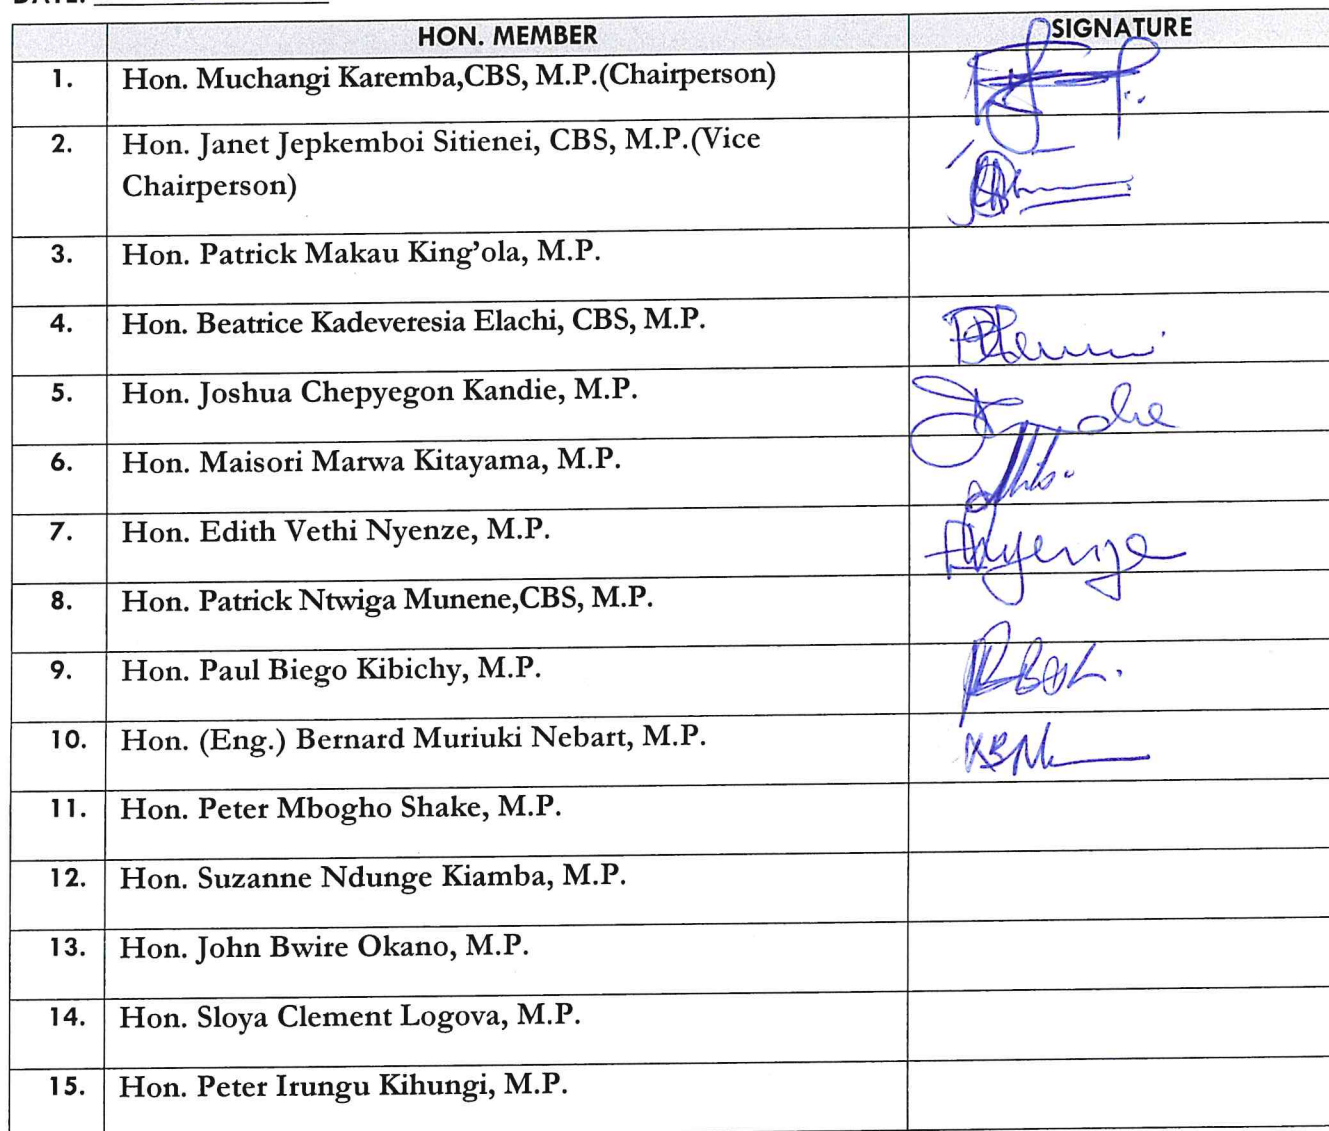 DATE:
HON. MEMBER SIGNATURE
1. Hon. Muchangi Karemba,CBS, M.P.(Chairperson)
2. Hon. Janet Jepkemboi Sitienei, CBS, M.P.(Vice
Chairperson)
3. Hon. Patrick Makau King'ola, M.P.
4. Hon. Beatrice Kadeveresia Elachi, CBS, M.P.
5. Hon. Joshua Chepyegon Kandie, M.P.
6. Hon. Maisori Marwa Kitayama, M.P.
7. Hon. Edith Vethi Nyenze, M.P.
8. Hon. Patrick Ntwiga Munene,CBS, M.P.
9. Hon. Paul Biego Kibichy, M.P.
10. Hon. (Eng.) Bernard Muriuki Nebart, M.P.
11. Hon. Peter Mbogho Shake, M.P.
12. Hon. Suzanne Ndunge Kiamba, M.P.
13. Hon. John Bwire Okano, M.P.
14. Hon. Sloya Clement Logova, M.P.
15. Hon. Peter Irungu Kihungi, M.P.